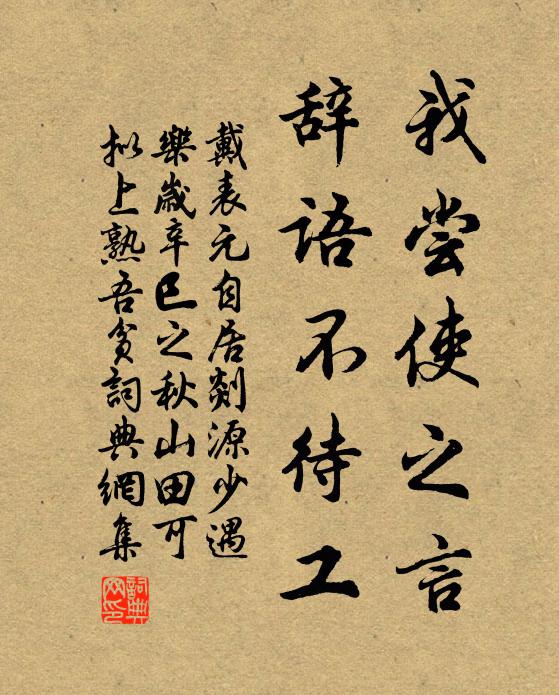 我尝使之言
辞语不待工
戴表元自居剡源少遇
樂歲辛巳之秋山田可
拟上熟吾贫詞典網集
詞典
网印